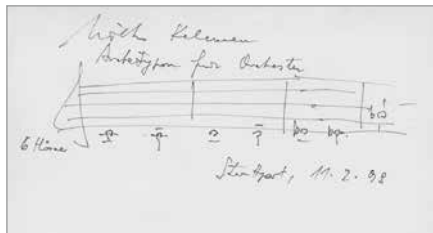 Milko Kelemen
Archetypon für Orchester
6 Hörner
Stuttgart, 11. 2. 98